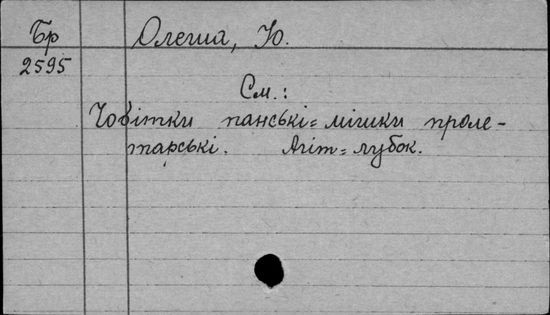 Бр
2595
Олеша, Ю.
См.:
Чобітки панські=мішки проле-
тарські. Агіт=лубок.